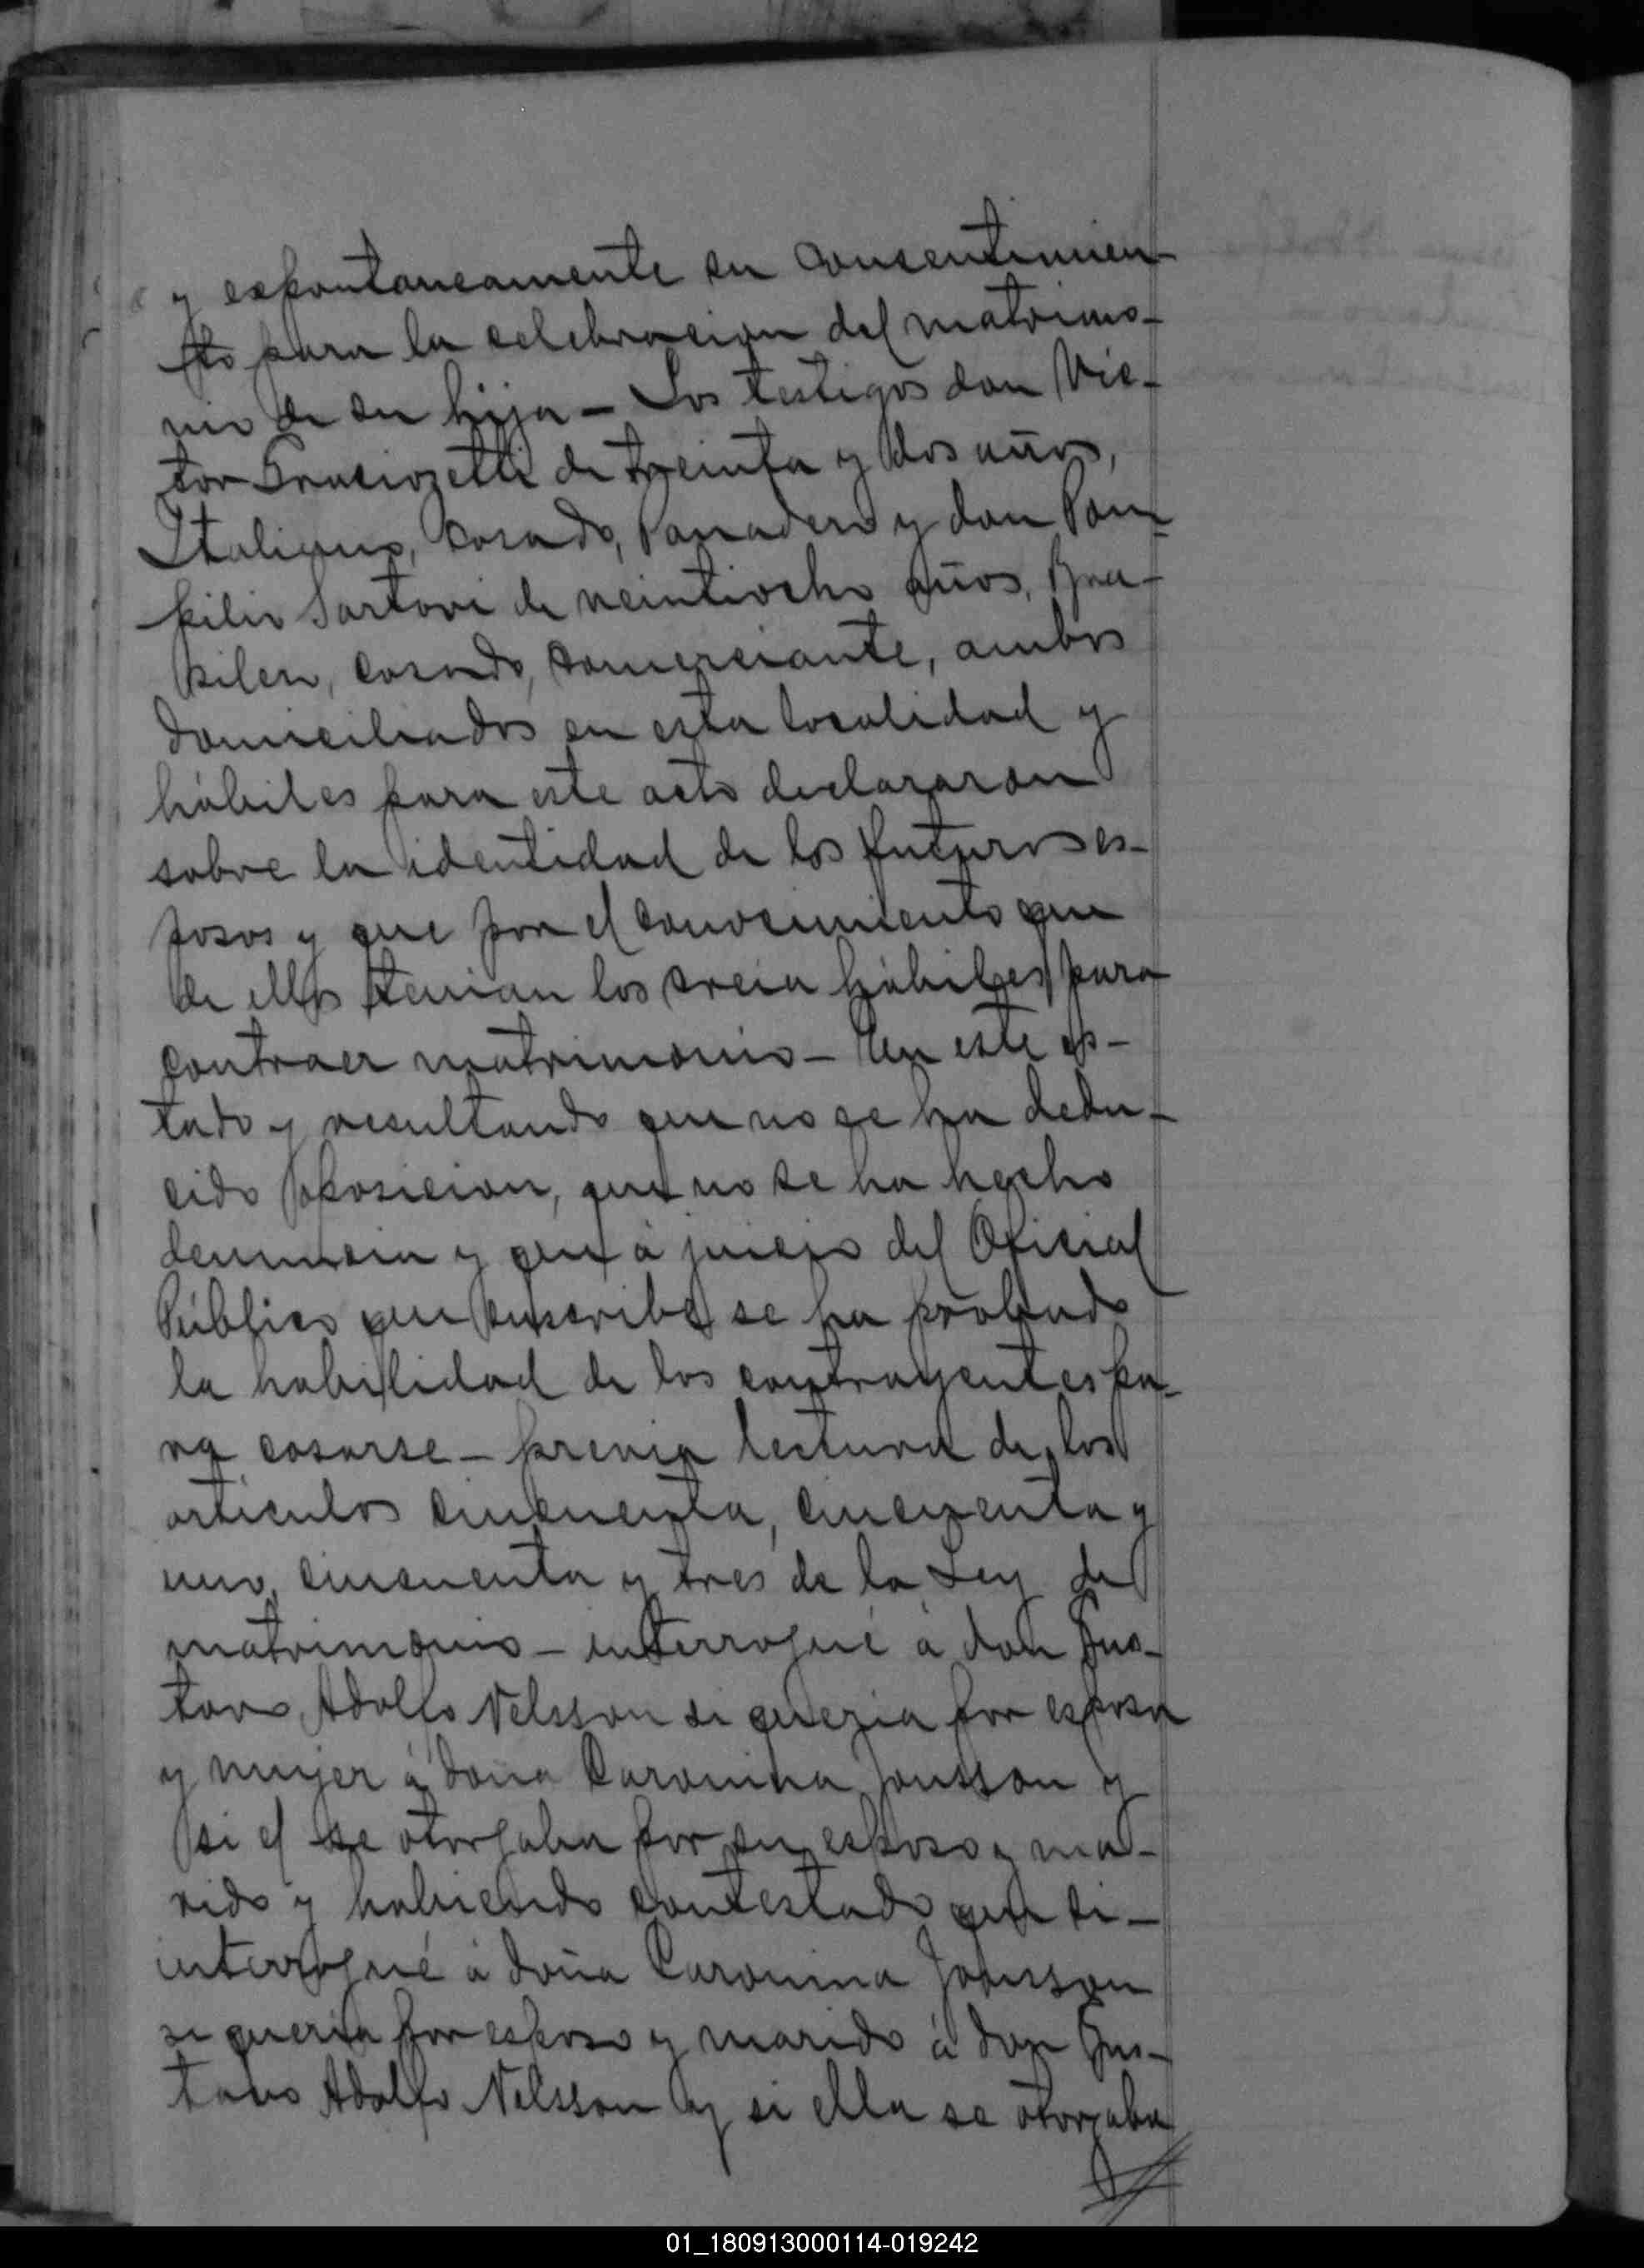 y espontaneamente su consentimien-
to para la celebracion del matrimo-
nio de su hija - Los testigos don Vic-
tor de treinta y dos años,
Italiano, casado, Panadero y don Pom-
pilio Sartori de veintiocho años, Bra-
silero, casado, comerciante, ambos
domiciliados en esta localidad y
hábiles para este acto declararon
sobre la identidad de los futuros es-
posos y que por el conocimiento que
de ellos tenian los creia hábiles para
contraer matrimonio - En este es-
tado y resultando que no se ha dedu-
cido oposicion, que no se ha hecho
denuncia y que á juicio del Oficial
Público que suscribe se ha probado
la habilidad de los contrayentes pa-
ra casarse - previa lectura de los
articulos cincuenta, cincuenta y
uno, cincuenta y tres de la Ley de
matrimonio - interrogué á don Gus-
tavo Adolfo Nelsson si queria por esposa
y mujer á doña Caronina Jonsson y
si el se otorgaba por su esposo y ma-
rido y habiendo contestado que si -
interrogué á doña Caronina Joonsson
si queria por esposo y marido á don Gus-
tavo Adolfo Nelsson y si ella se otorgaba
01_180913000114-019242